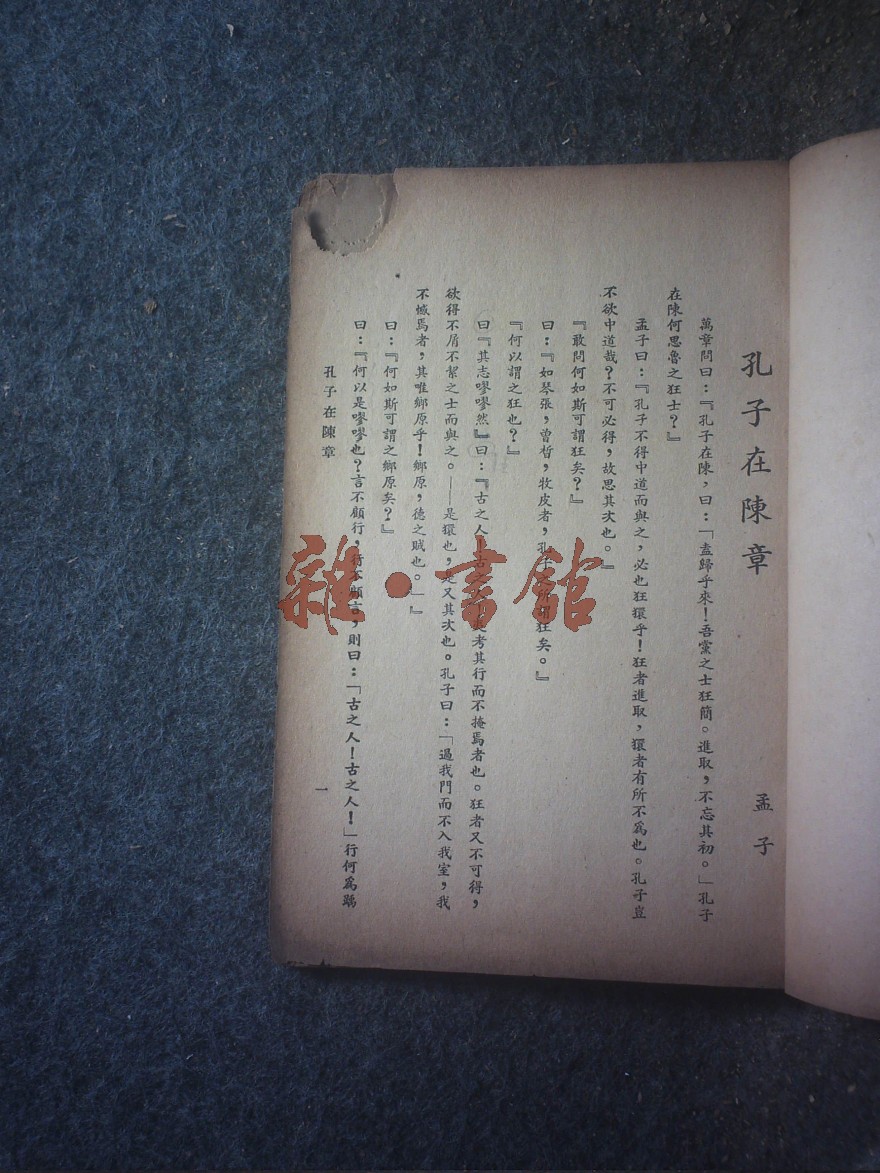 孔子在陳章
孟子
萬章問曰：『孔子在陳，曰：「盍歸乎來！吾黨之士狂簡。進取，不忘其初。」孔子
在陳何思魯之狂士？』
孟子曰：『孔子不得中道而與之，必也狂獧乎！狂者進取，獧者有所不爲也。孔子豈
不欲中道哉？不可必得，故思其次也。』
『敢問何如斯可謂狂矣？』
曰：『如琴張，曾晳，牧皮者，孔子之所謂狂矣。』
『何以謂之狂也？』
曰『其志嘐嘐然』曰：『古之人古之考其行而不掩焉者也。狂者又不可得，
欲得不屑不絜之士而與之。——是獧也，是又其次也。孔子曰：「過我門而不入我室，我
不憾焉者，其唯鄉原乎！鄉原，德之賊也。」』
曰：『何如斯可謂之鄉原矣？』
曰：『何以是嘐嘐也？言不顧行，行不顧言，則曰：「古之人！古之人！」行何爲踽
孔子在陳章
一
雜·書館